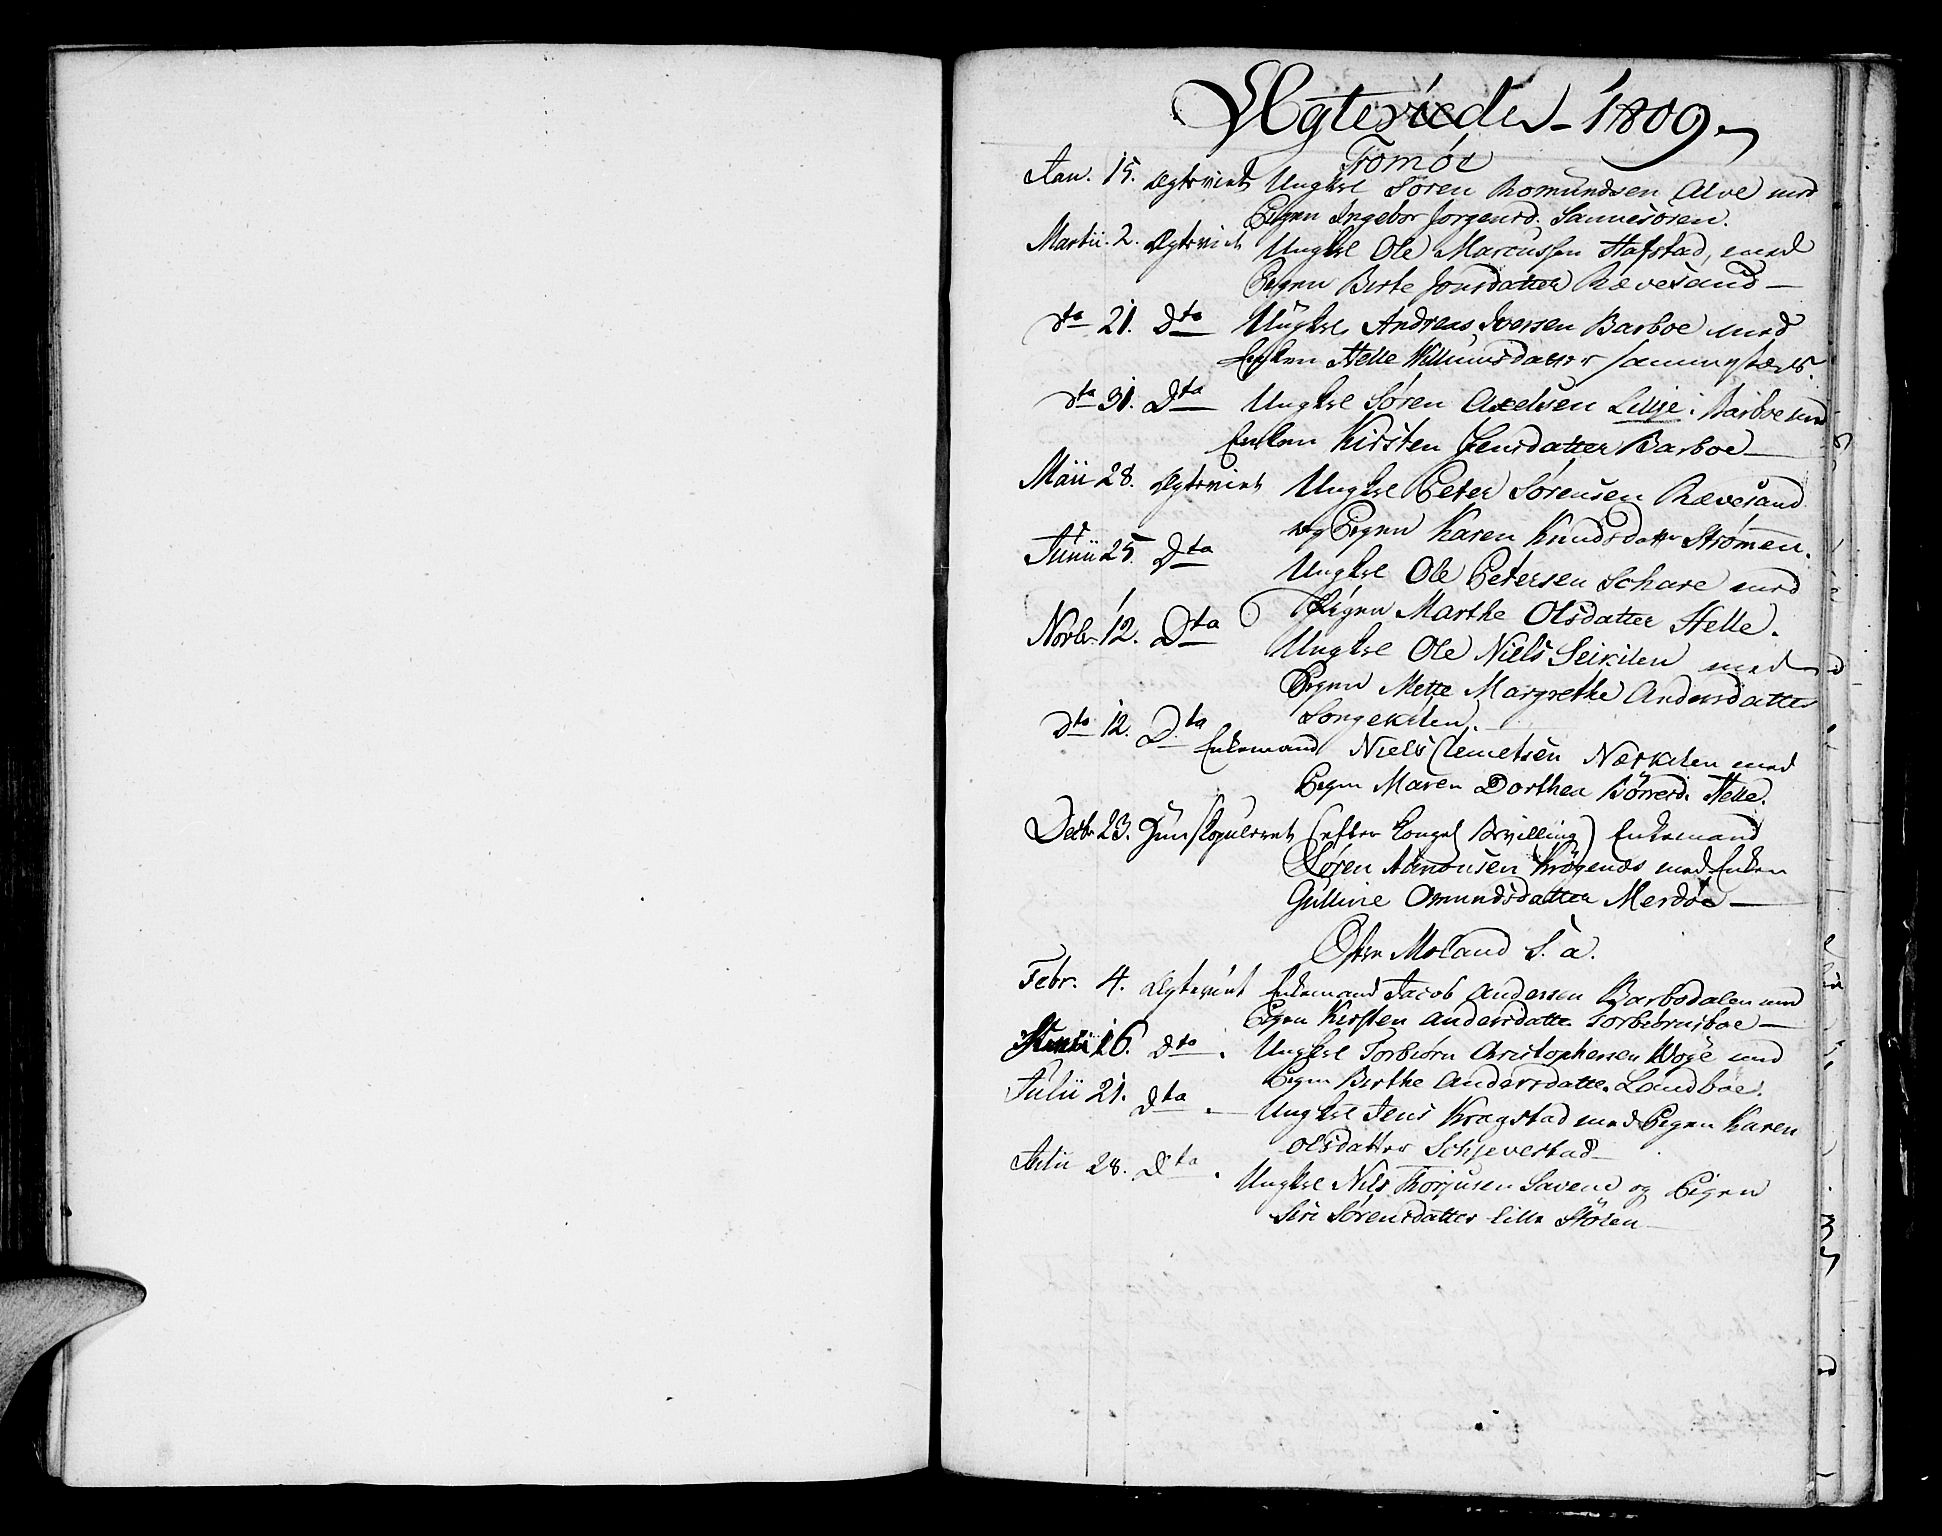 Ægteviede 1809
Tromöe
Jan. 15. Ægteviet Ungkrl Søren Romundsen Alve med
Pigen Ingebor Jørgensd. Sannesøren.
Martii. 2. Ægteviet Ungkrl Ole Marcussen Hafstad, med
Pigen Birte Jonsdatter Rævesand
dto 21. Dto Ungkrl Andreas Iversen Barboe med
Enken Helle Willumsdatter sammestæds.
dto 31. Dto Ungkrl Søren Axelsen Lillje i Barboe med
Enken Kirsten Jensdatter Barboe
Maii 28. Ægteviet Ungkrl Peter Sørensen Rævesand
og Pigen Karen Knudsdatter Strømen.
Junii 25. Dto Ungkrl Ole Petersen Schare med
Pigen Marthe Olsdatter Helle.
Novbr. 12. Dto Ungkrl Ole Niels Seikilen med
Pigen Mette Margrethe Andersdatter
Songekilen.
dto 12. Dto Enkemand Niels Clemetsen Nærkilen med
Pigen Maren Dorthea Börresd. Helle.
Decbr 23. Copuleret (efter Kongel Bevilling) Enkemand
Søren Krøgenes med Enken
Gulline Omundsdatter Merdøe
Øster Moland S. a.
Febr. 4. Ægteviet Enkemand Jacob Andersen Barbodalen med
Pigen Kirsten Andersdatter Torbiørnsboe
16. dto. Ungkrl Torbiørn Christophersen Woge med
Pigen Birthe Andersdatter Landboe.
Julii 21. dto. Ungkrl Jens Kragstad med Pigen Karen
Olsdatter Schjeverstad
Julii 28. dto. Ungkrl Nils Thorjusen Savene og Pigen
Siri Sørensdatter Lille Stölen